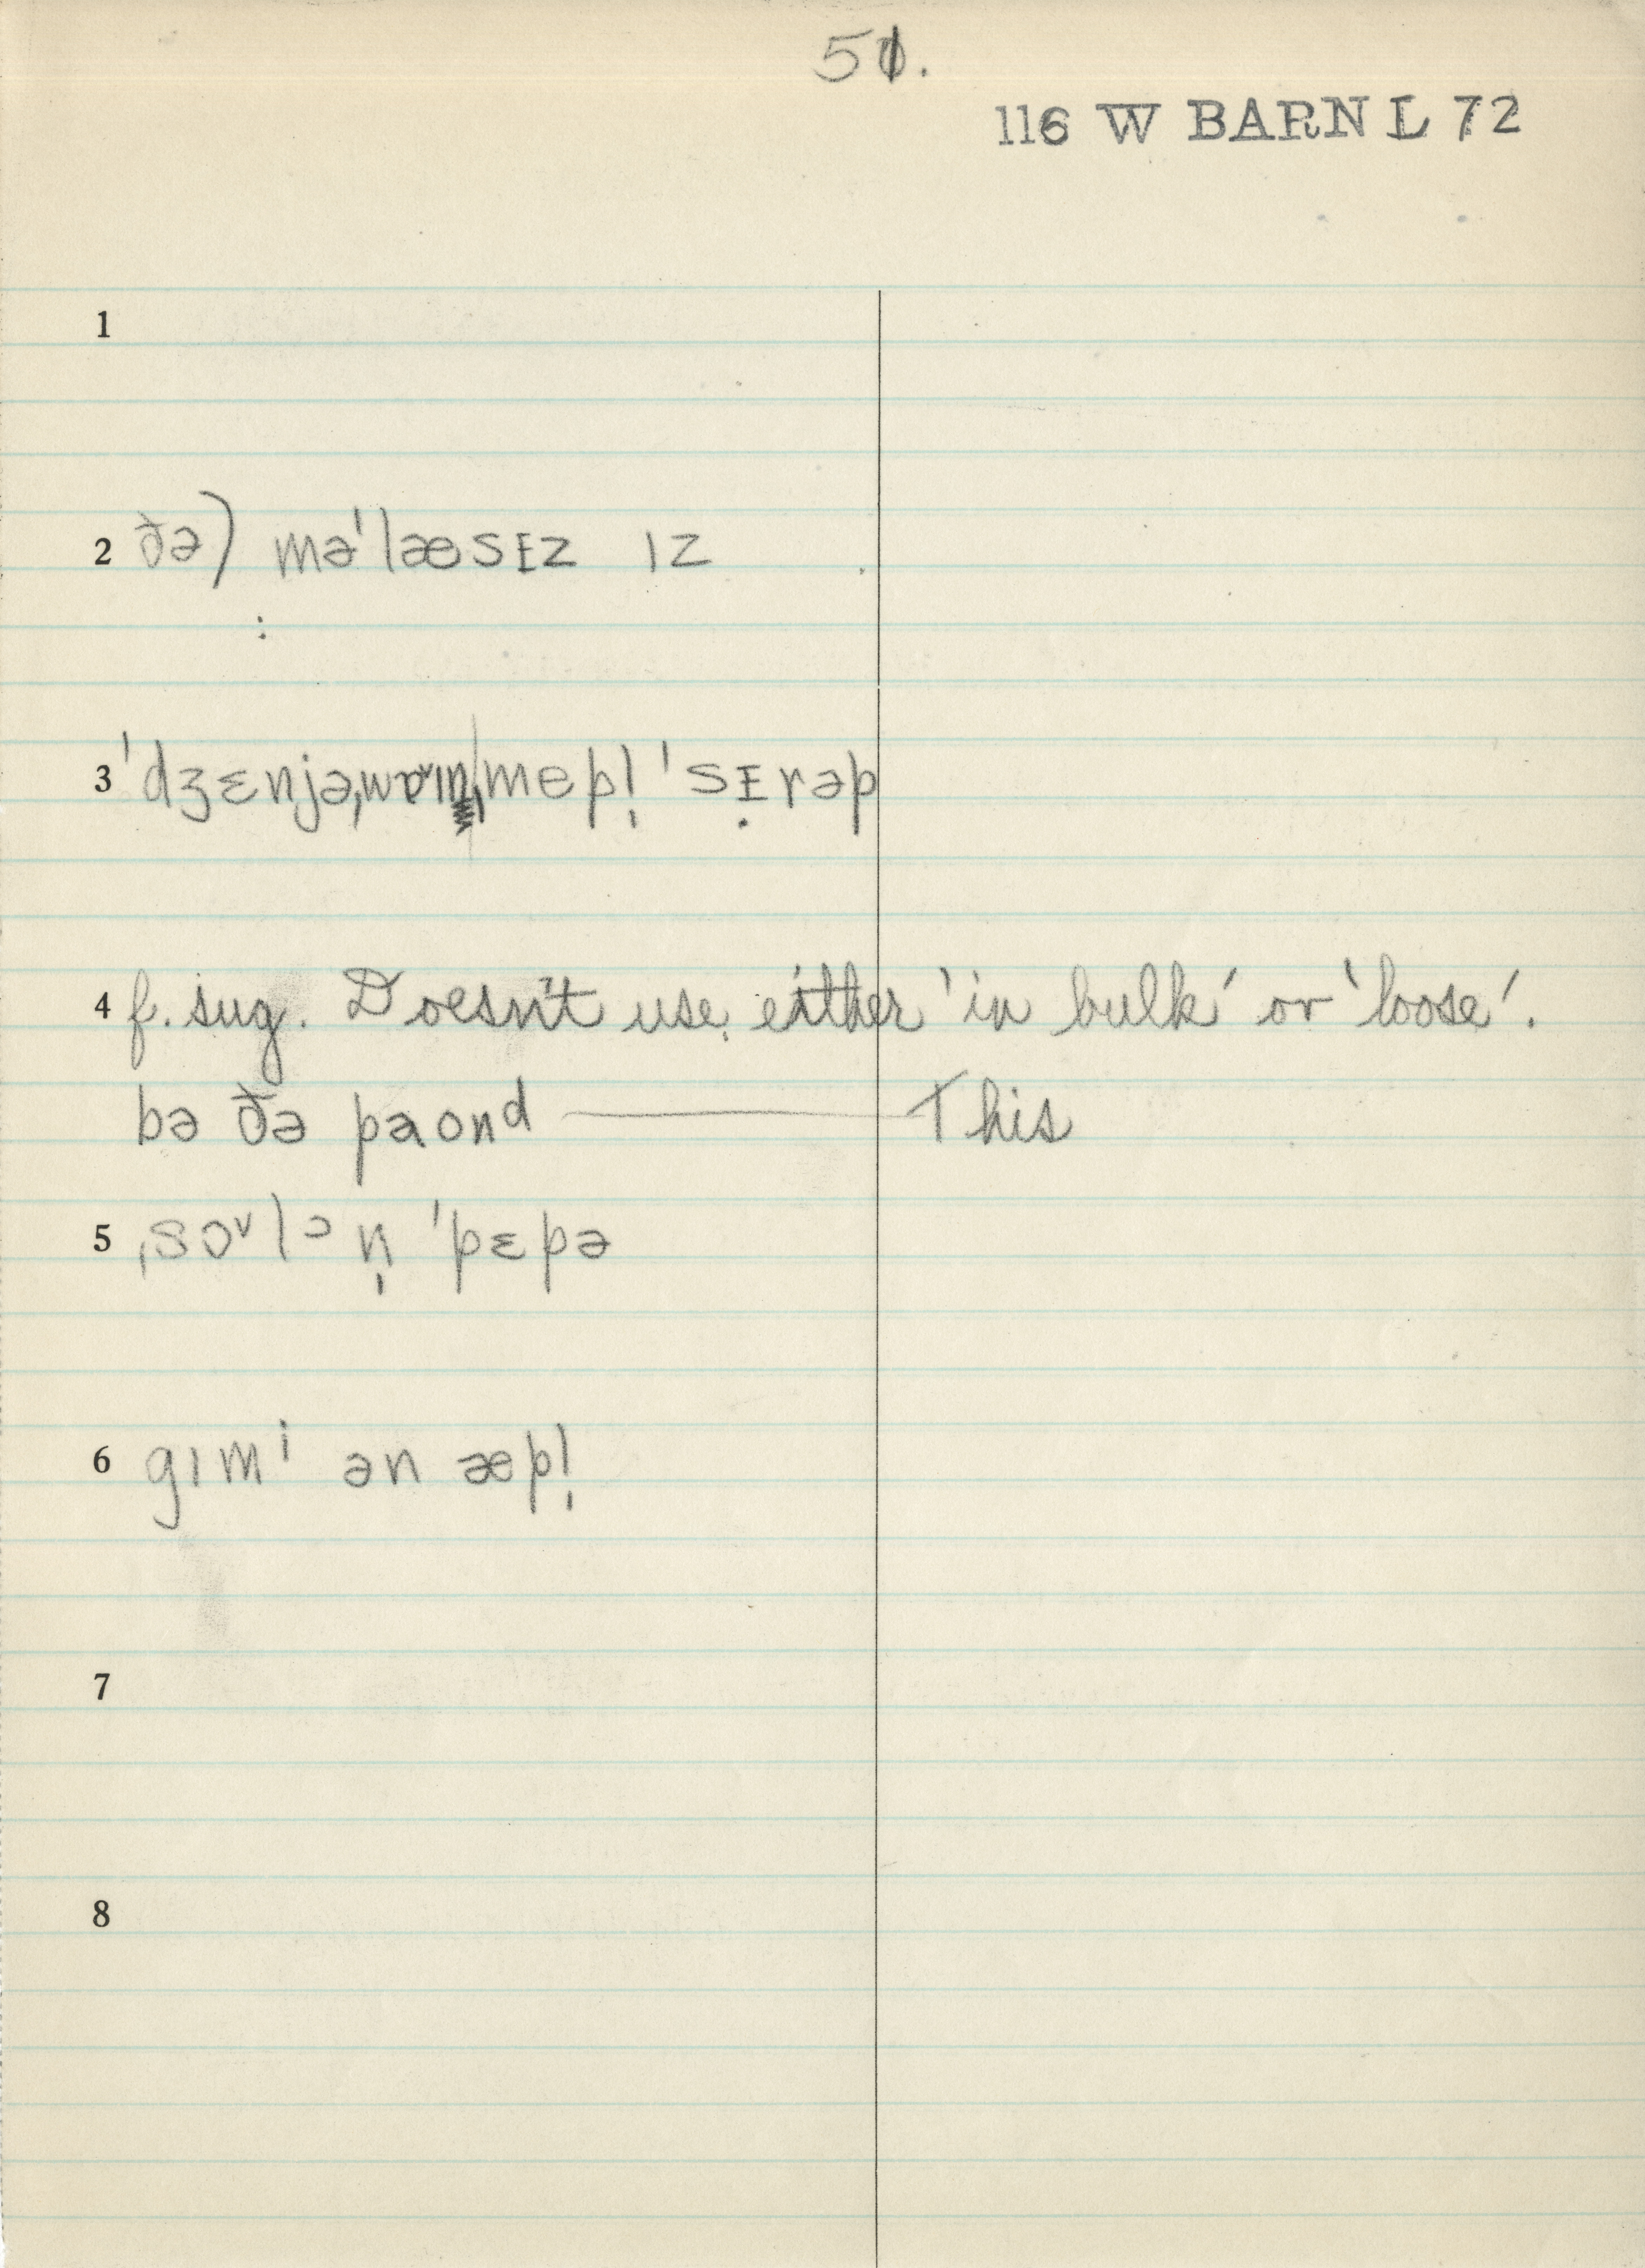 50.
116 W BARN L 72
1
2 ðə) mə'læsɪz ɪz
:
3 'dʒɛnjəˌwɒˇɪn ˌmepl̩ 'sɪ̣rəp
4 f. sug. Doesn't use either 'in bulk' or 'loose'.
bə ðə paond — This
5 ˌsɔˇlᵊn̩ 'pɛpə
6 gɪmⁱ ən æpl̩
7
8